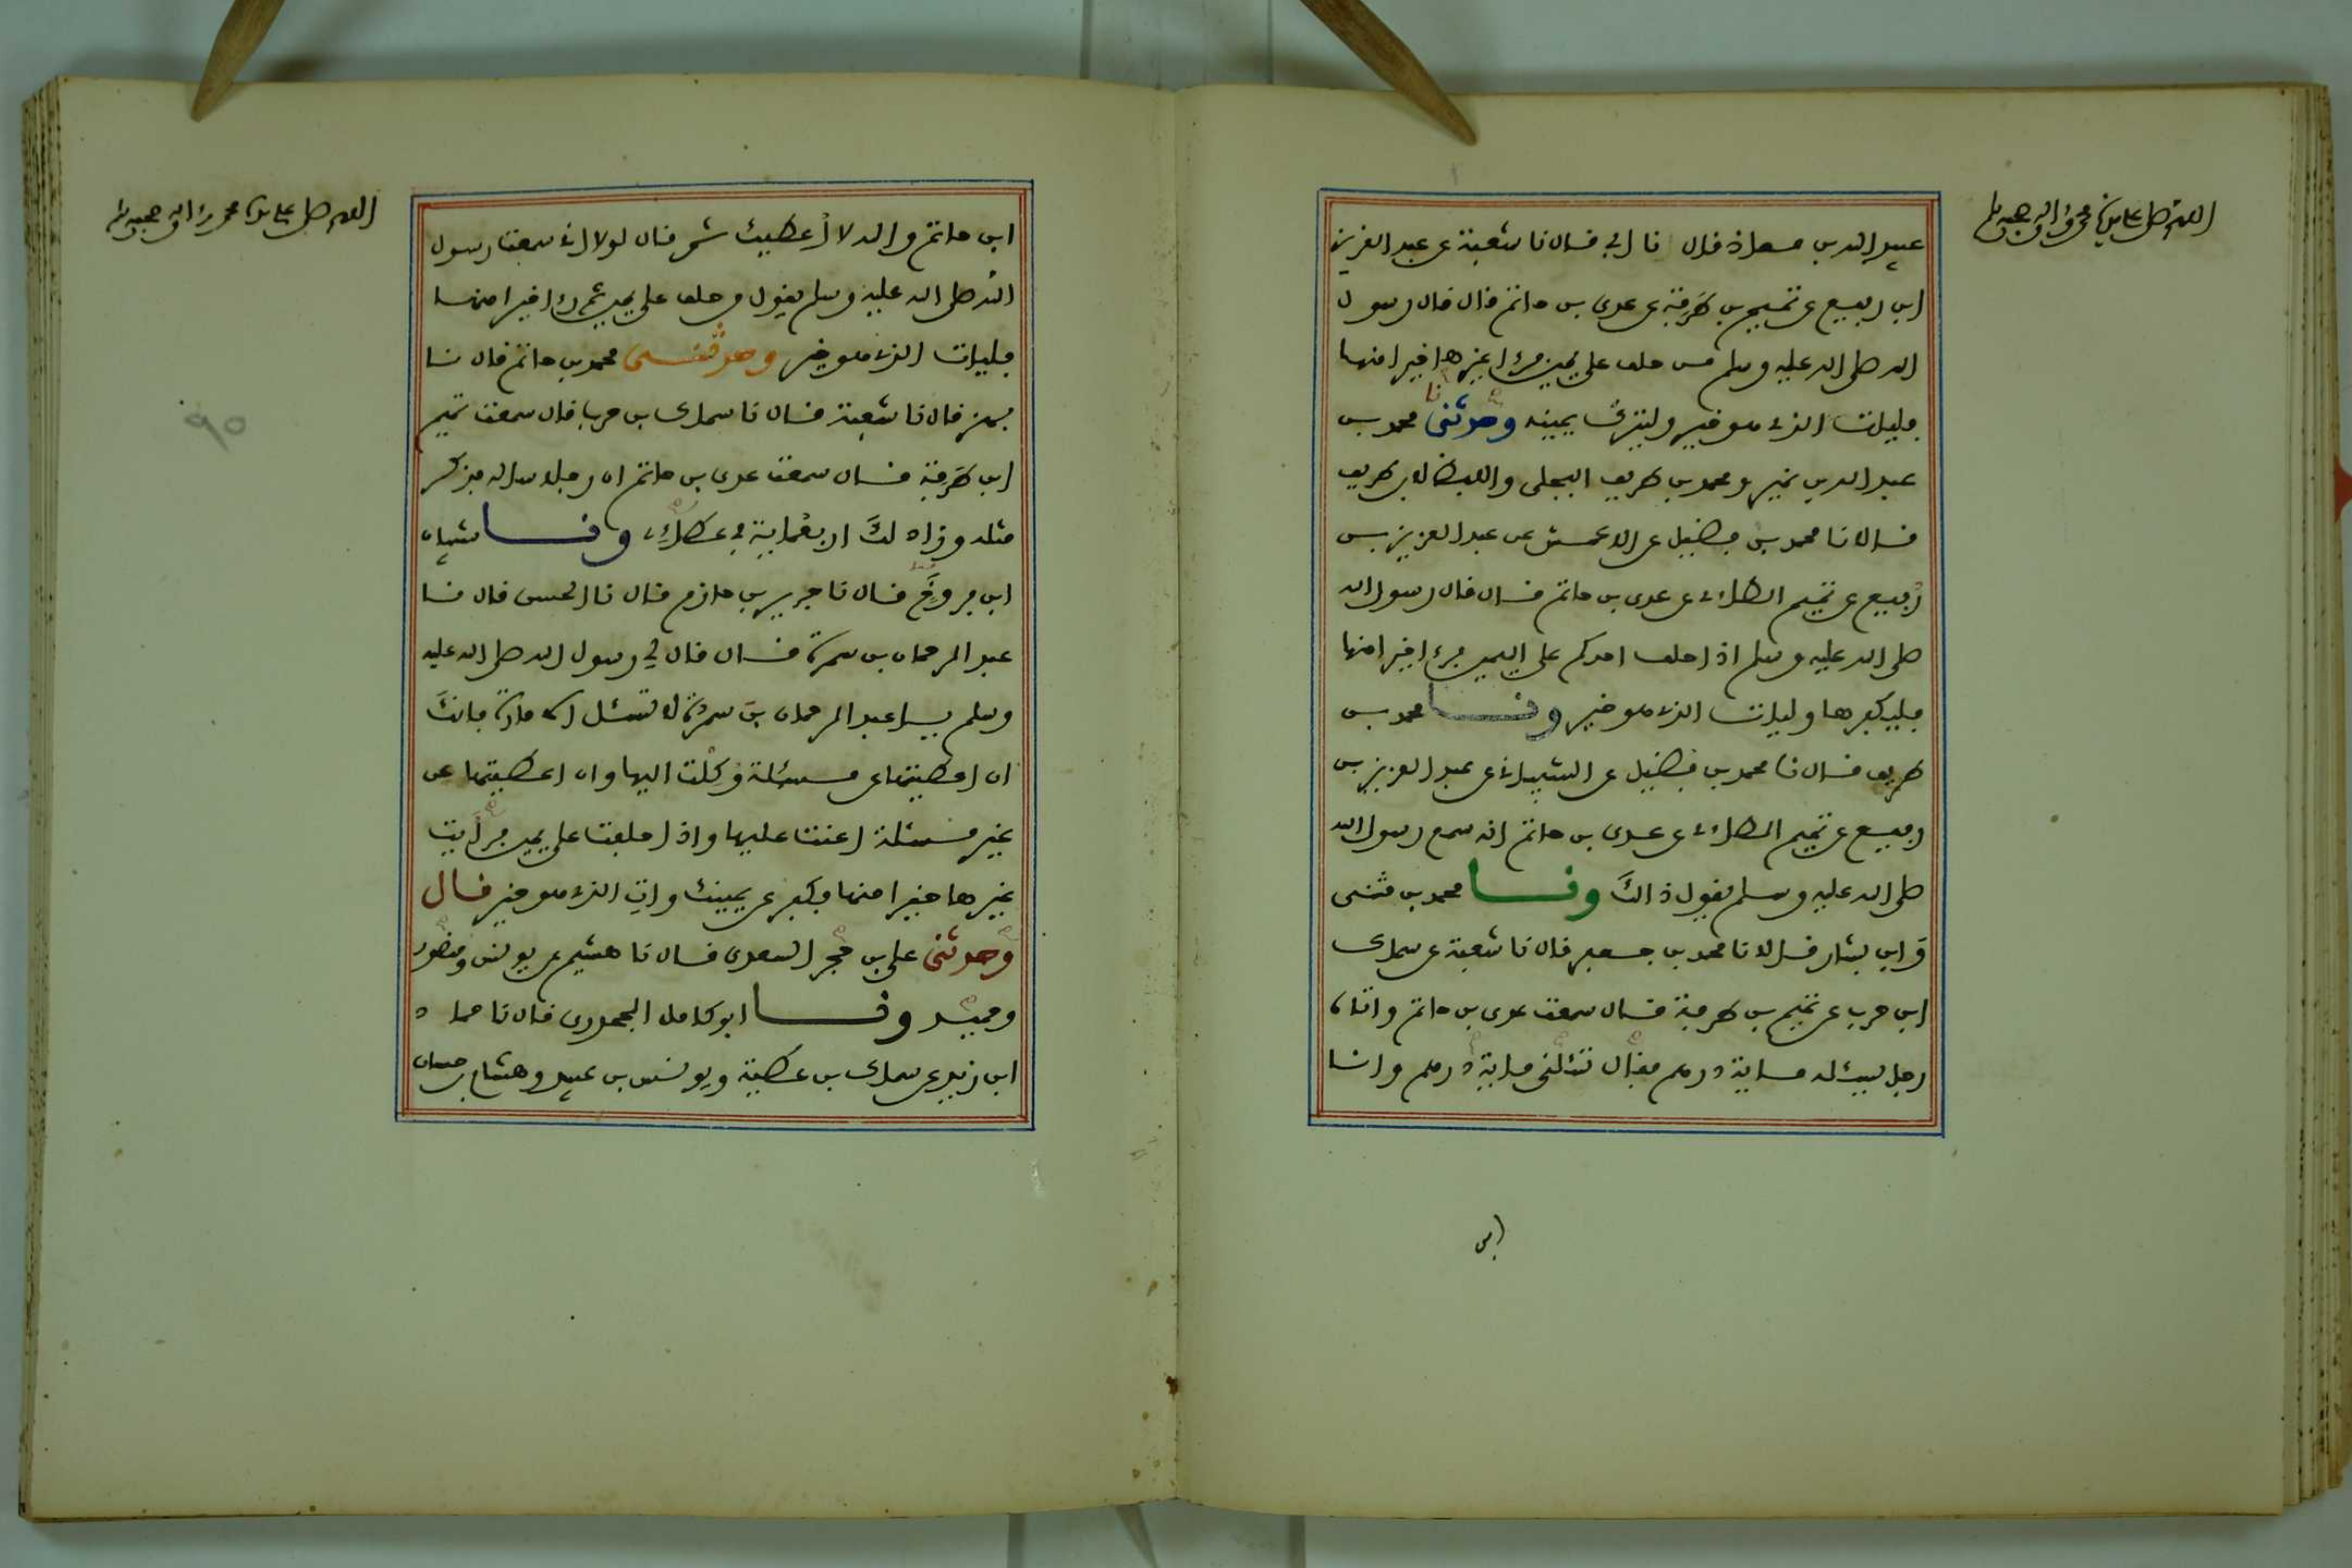 اللهم صل على سيدنا محمد وءاله وصحبه وسلم
عبيد الله بن معاذ قال نا ابي قال نا شعبة عن عبد العزيز
ابن رفيع عن تميم بن طرفة عن عدى بن حاتم قال قال رسول
الله صلى الله عليه وسلم من حلف على يمين فرءا غيرها خيرا منها
فليات الذي هو خير وليترك يمينه وحدثنى محمد بن
عبد الله بن نمير ومحمد بن طريف البجلى واللفظ لابن طريف
قالا نا محمد بن فضيل عن الاعمش عن عبد العزيز بن
رفيع عن تميم الطاءى عن عدى بن حاتم قال قال رسول الله
صلى الله عليه وسلم اذا حلف احدكم على اليمين فرءا خيرا منها
فليكفرها وليات الذي هو خير ونا محمد بن
طريف قال نا محمد بن فضيل عن الشيباني عن عبد العزيز بن
رفيع عن تميم الطاءى عن عدى بن حاتم انه سمع رسول الله
صلى الله عليه وسلم يقول ذالك ونا محمد بن مثنى
وابن بشار قالا نا محمد بن جعفر قال نا شعبة عن سماك
ابن حرب عن تميم بن طرفة قال سمعت عدى بن حاتم واتاه
رجل يسئله ماية درهم فقال تسئلنى ماية درهم وانا
ابن
اللهم صل على سيدنا محمد وءاله وصحبه وسلم
ابن حاتم والله لا أعطيك ثم قال لولا اني سمعت رسول
الله صلى الله عليه وسلم يقول من حلف على يمين ثم رءا خيرا منها
فليات الذي هو خير وحدثنى محمد بن حاتم قال نا
بهز قال نا شعبة قال نا سماك بن حرب قال سمعت تميم
ابن طرفة قال سمعت عدى بن حاتم ان رجلا ساله فذكر
مثله وزاد لك اربعماية في عطاءى ونا شيبان
ابن فروخ قال نا جرير بن حازم قال نا الحسن قال نا
عبد الرحمان بن سمرة قال قال لي رسول الله صلى الله عليه
وسلم يا عبد الرحمان بن سمرة لا تسئل الامارة فانك
ان اعطيتها عن مسئلة وكلت اليها وان اعطيتها عن
غير مسئلة اعنت عليها واذا حلفت على يمين فرأيت
غيرها خيرا منها فكفر عن يمينك وات الذي هو خير قال
وحدثنى علي بن حجر السعدى قال نا هشيم عن يونس ومنصور
وحميد ونا ابو كامل الجحدرى قال نا حماد
ابن زيد عن سماك بن عطية ويونس بن عبيد وهشام بن حسان
٩٥